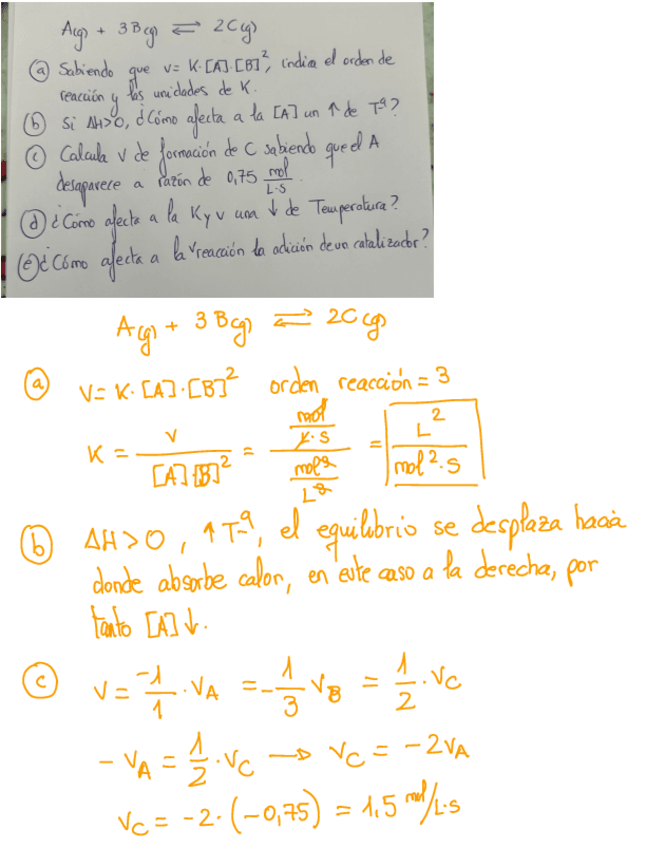 A(g) + 3B(g) ⇌ 2C(g)
(a) Sabiendo que v= K·[A]·[B]², indica el orden de
reacción y las unidades de K.
(b) Si ΔH>0, ¿Cómo afecta a la [A] un ↑ de Tª?
(c) Calcula v de formación de C sabiendo que el A
desaparece a razón de 0,75 mol/L·s.
(d) ¿Cómo afecta a la K y v una ↓ de Temperatura?
(e) ¿Cómo afecta a la v reacción la adición de un catalizador?
A(g) + 3B(g) ⇌ 2C(g)
(a) v= K·[A]·[B]² orden reacción = 3
K = v/[A][B]² = (mol/L·s)/(mol³/L³) = L²/mol²·s
(b) ΔH>0, ↑Tª, el equilibrio se desplaza hacia
donde absorbe calor, en este caso a la derecha, por
tanto [A]↓.
(c) v= -1/1·vA = -1/3 vB = 1/2·vC
-vA = 1/2·vC → vC = -2vA
vC = -2·(-0,75) = 1,5 mol/L·s